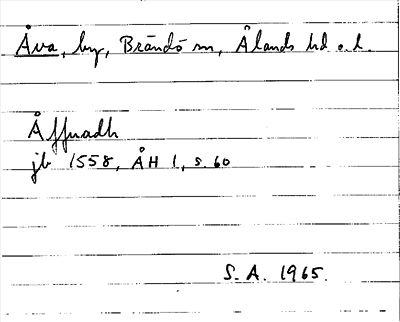 Åva, by, Brändö sn, Ålands hd o. l.
Åffuadh
jb 1558, ÅH 1, s. 60
S. A. 1965.